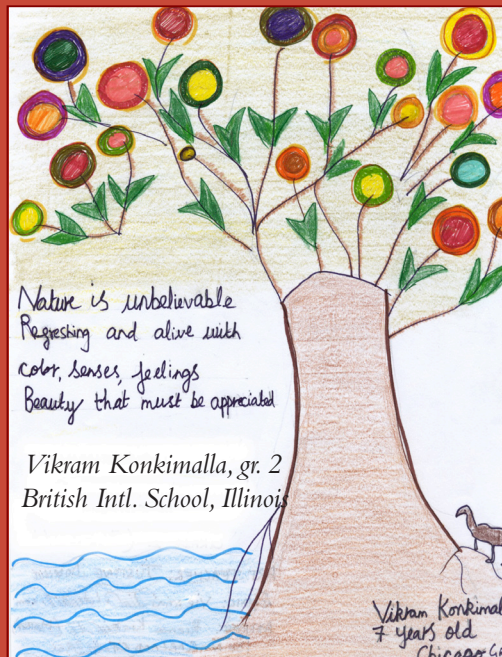 Nature is unbelievable
Refreshing and alive with
color, senses, feelings
Beauty that must be appreciated
Vikram Konkimalla, gr. 2
British Intl. School, Illinois
Vikram Konkimal
7 years old
Chicago